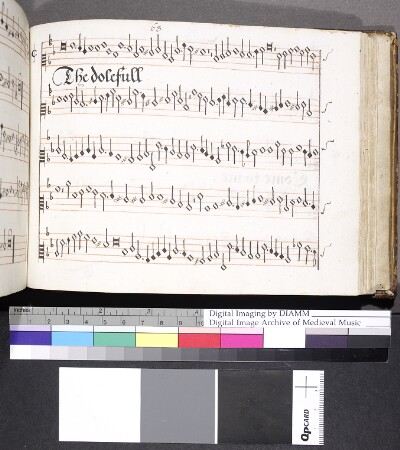 68
The dolefull
inches 1 2 3 4
1 2 3 4 5 6 7 8 9 10
Digital Imaging by DIAMM
Digital Image Archive of Medieval Music
QPCARD